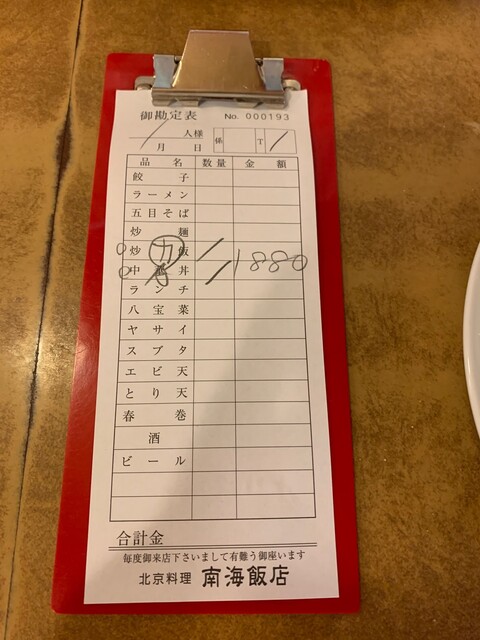 御勘定表 No. 000193
/ 人様 係 T /
月 日
品 名 数量 金 額
餃 子
ラーメン
五目そば
炒 麺
炒 飯 カ /
中 丼 / 1880
ランチ
八宝菜
ヤサイ
スブタ
エビ天
とり天
春 巻
酒
ビール
合計金
毎度御来店下さいまして有難う御座います
北京料理 南海飯店